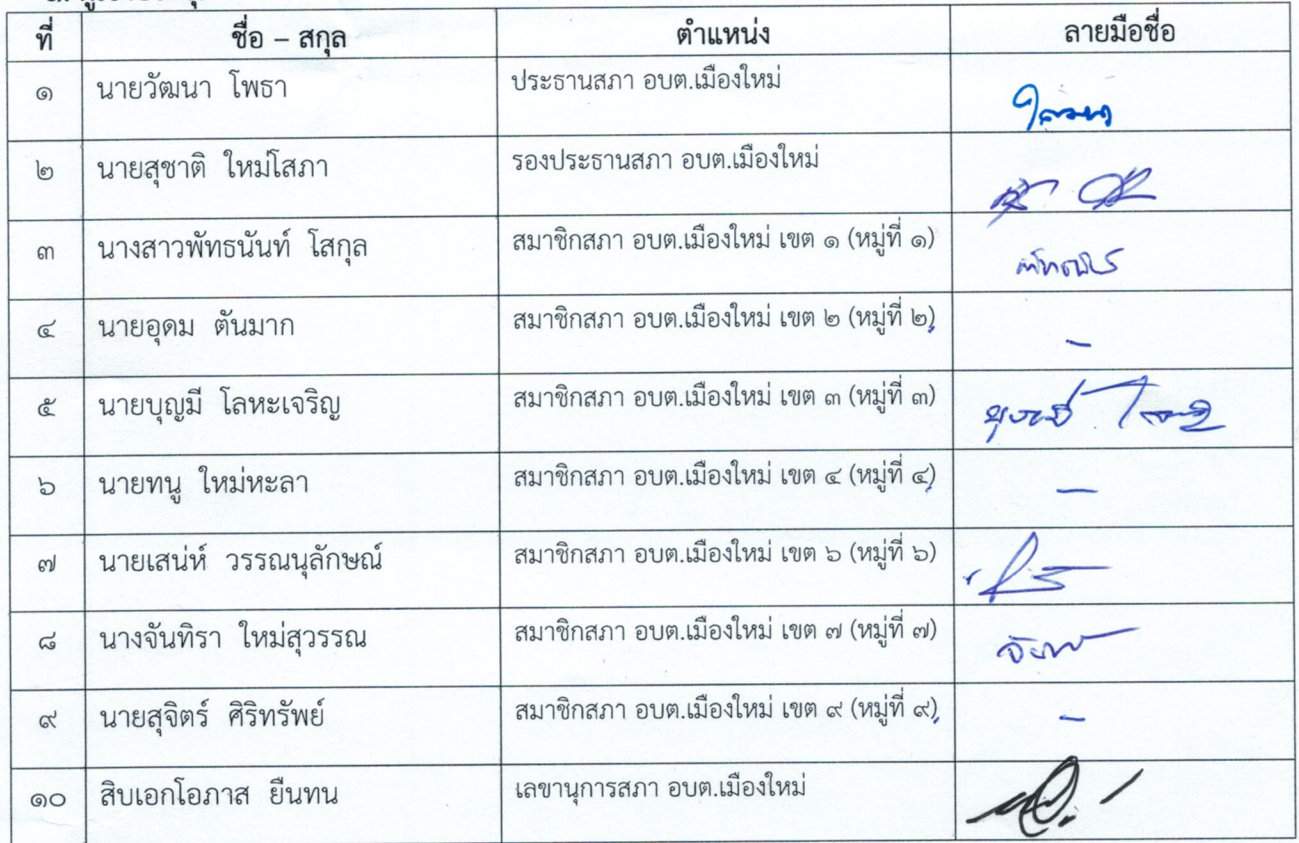 ที่ ชื่อ – สกุล ตำแหน่ง ลายมือชื่อ
๑ นายวัฒนา โพธา ประธานสภา อบต.เมืองใหม่
๒ นายสุชาติ ใหม่โสภา รองประธานสภา อบต.เมืองใหม่
๓ นางสาวพัทธนันท์ โสกุล สมาชิกสภา อบต.เมืองใหม่ เขต ๑ (หมู่ที่ ๑)
๔ นายอุดม ตันมาก สมาชิกสภา อบต.เมืองใหม่ เขต ๒ (หมู่ที่ ๒) -
๕ นายบุญมี โลหะเจริญ สมาชิกสภา อบต.เมืองใหม่ เขต ๓ (หมู่ที่ ๓)
๖ นายทนู ใหม่หะลา สมาชิกสภา อบต.เมืองใหม่ เขต ๔ (หมู่ที่ ๔) -
๗ นายเสน่ห์ วรรณนุลักษณ์ สมาชิกสภา อบต.เมืองใหม่ เขต ๖ (หมู่ที่ ๖)
๘ นางจันทิรา ใหม่สุวรรณ สมาชิกสภา อบต.เมืองใหม่ เขต ๗ (หมู่ที่ ๗)
๙ นายสุจิตร์ ศิริทรัพย์ สมาชิกสภา อบต.เมืองใหม่ เขต ๙ (หมู่ที่ ๙) -
๑๐ สิบเอกโอภาส ยืนทน เลขานุการสภา อบต.เมืองใหม่